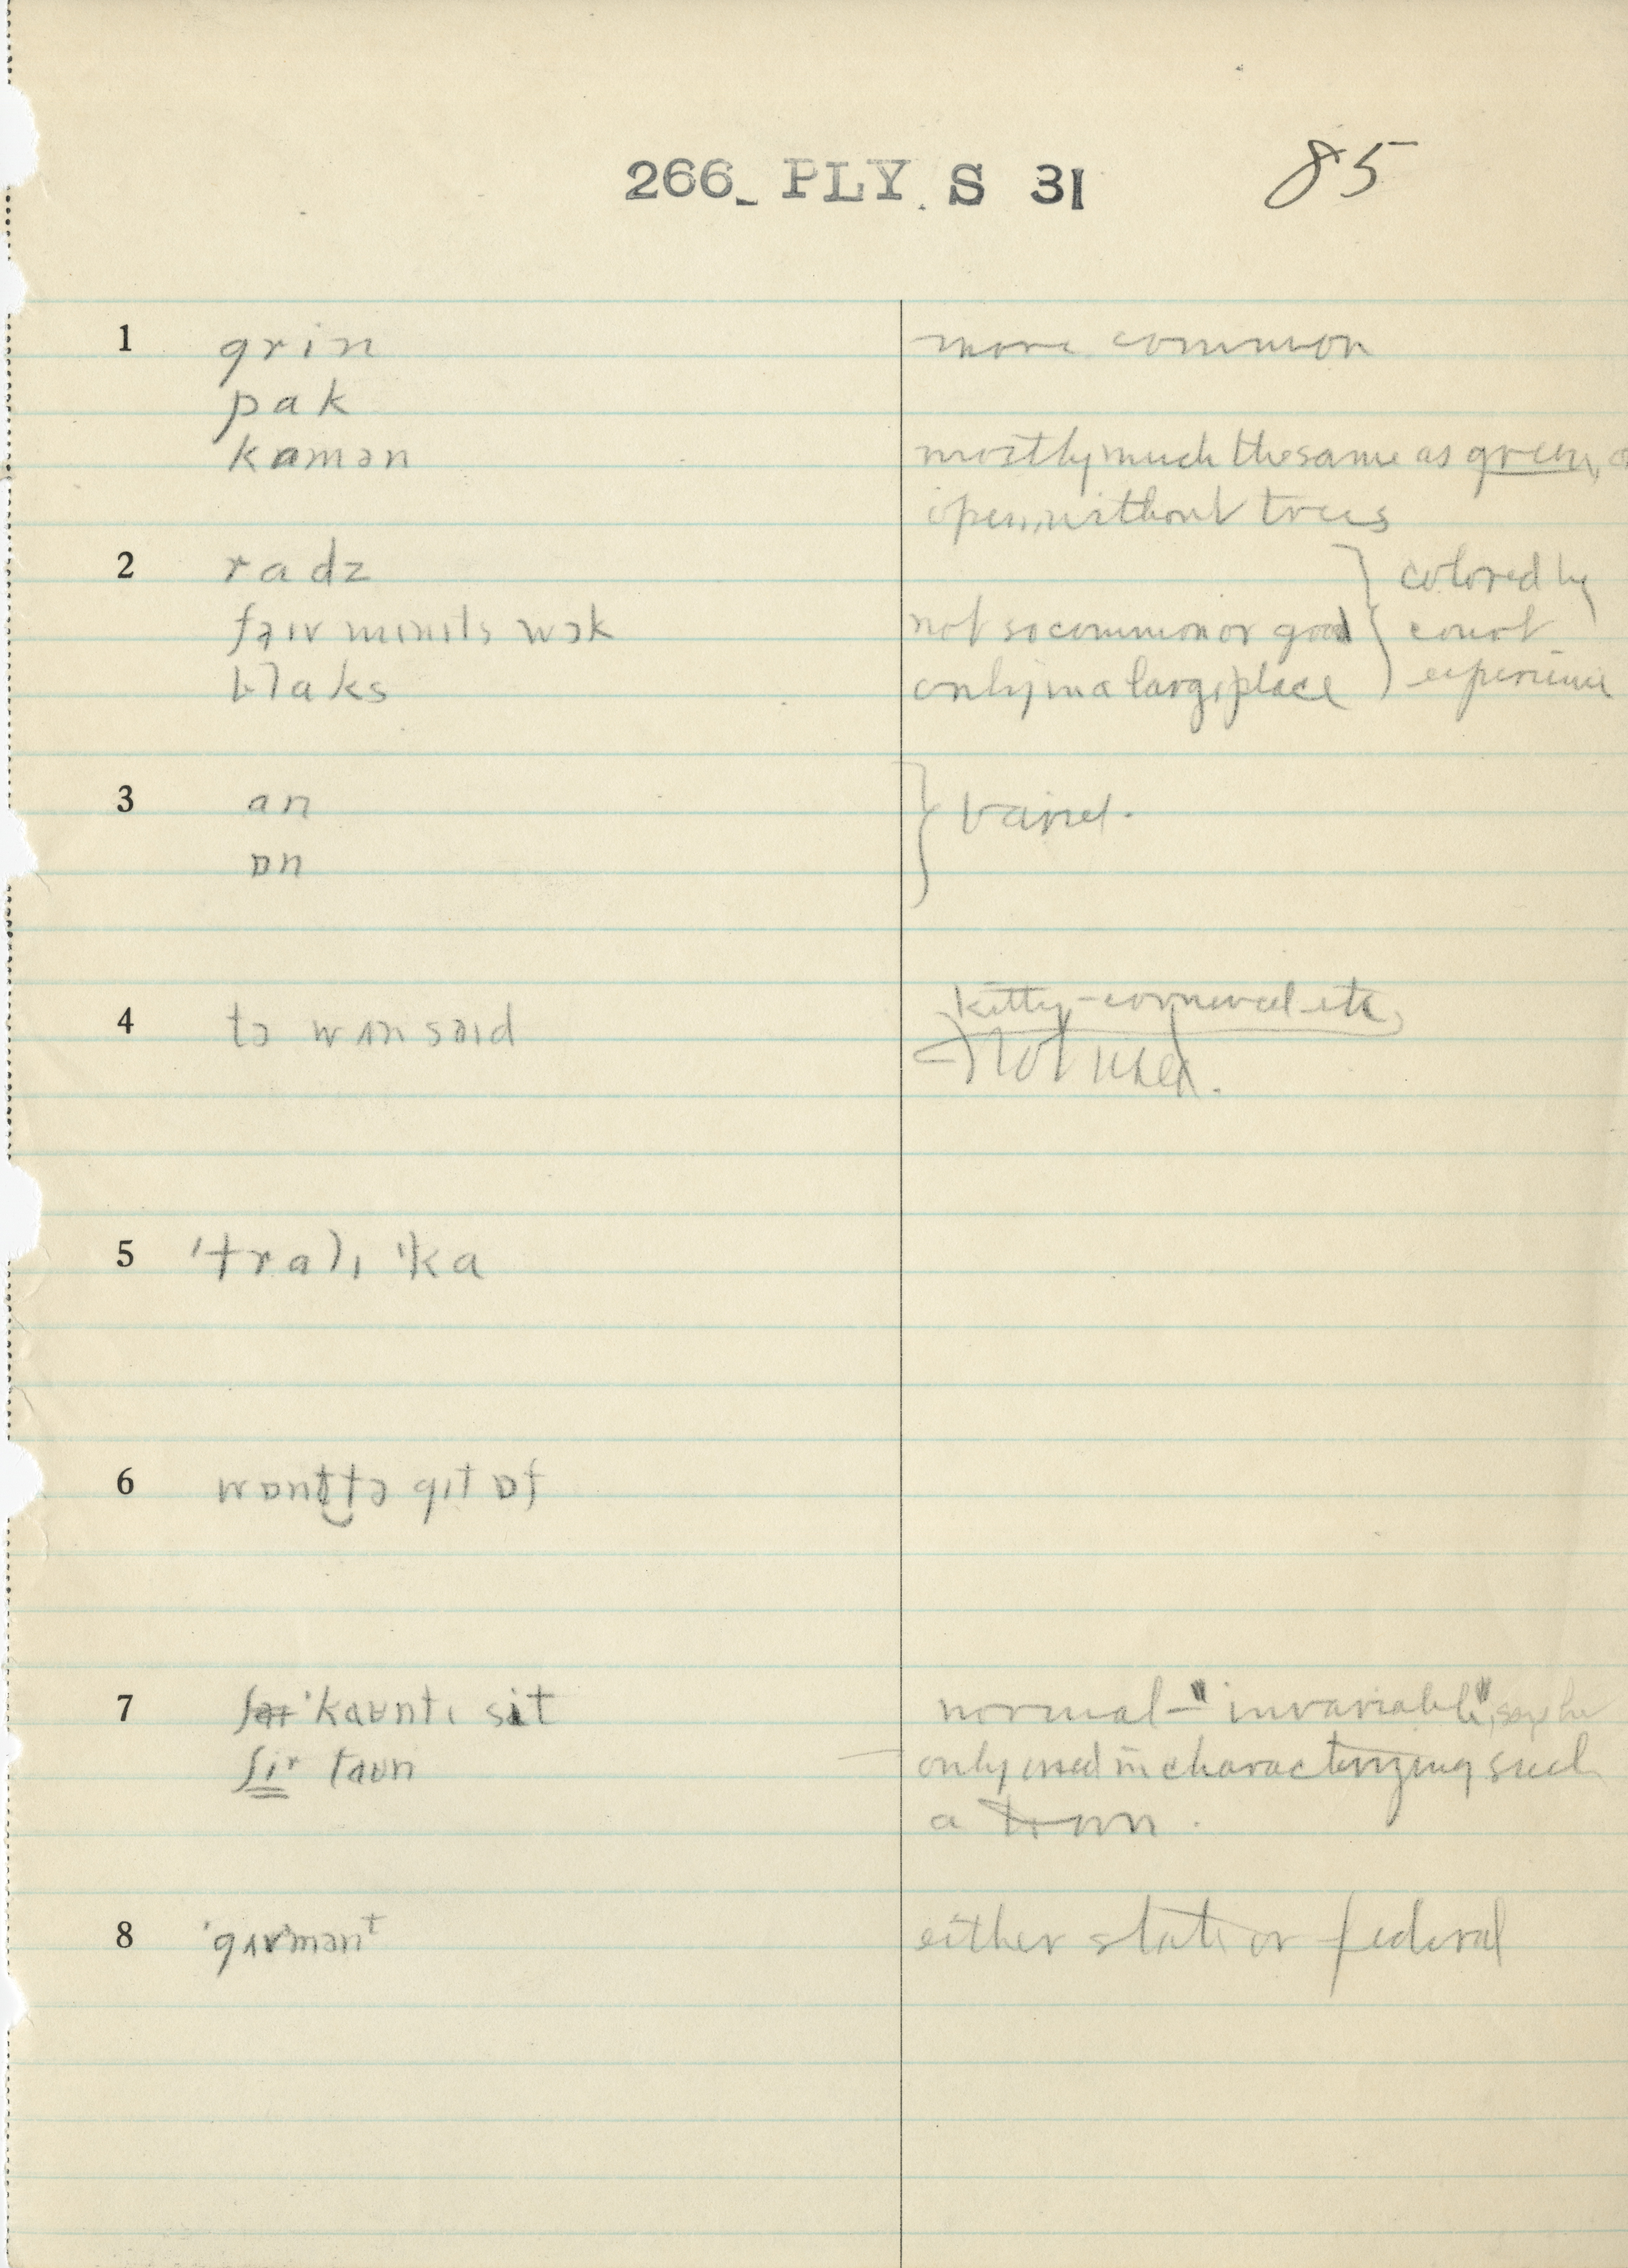 266_ PLY. S 31 85
1 grin more common
pak
kamən mostly much the same as green,
open, without trees
2 radz colored by
faɪv mɪnɪts wɔk not so common or good court
blaks only in a large place experience
3 an varied.
ɒn
4 tə wʌn saɪd kitty-cornered etc
not used.
5 'tralɪ 'ka
6 wɒnt tə gɪt ɒf
7 'kaʊntɪ sit normal – "invariable", says he
ʃɪr taʊn only used in characterizing such
a town.
8 'gʌvmənt either state or federal